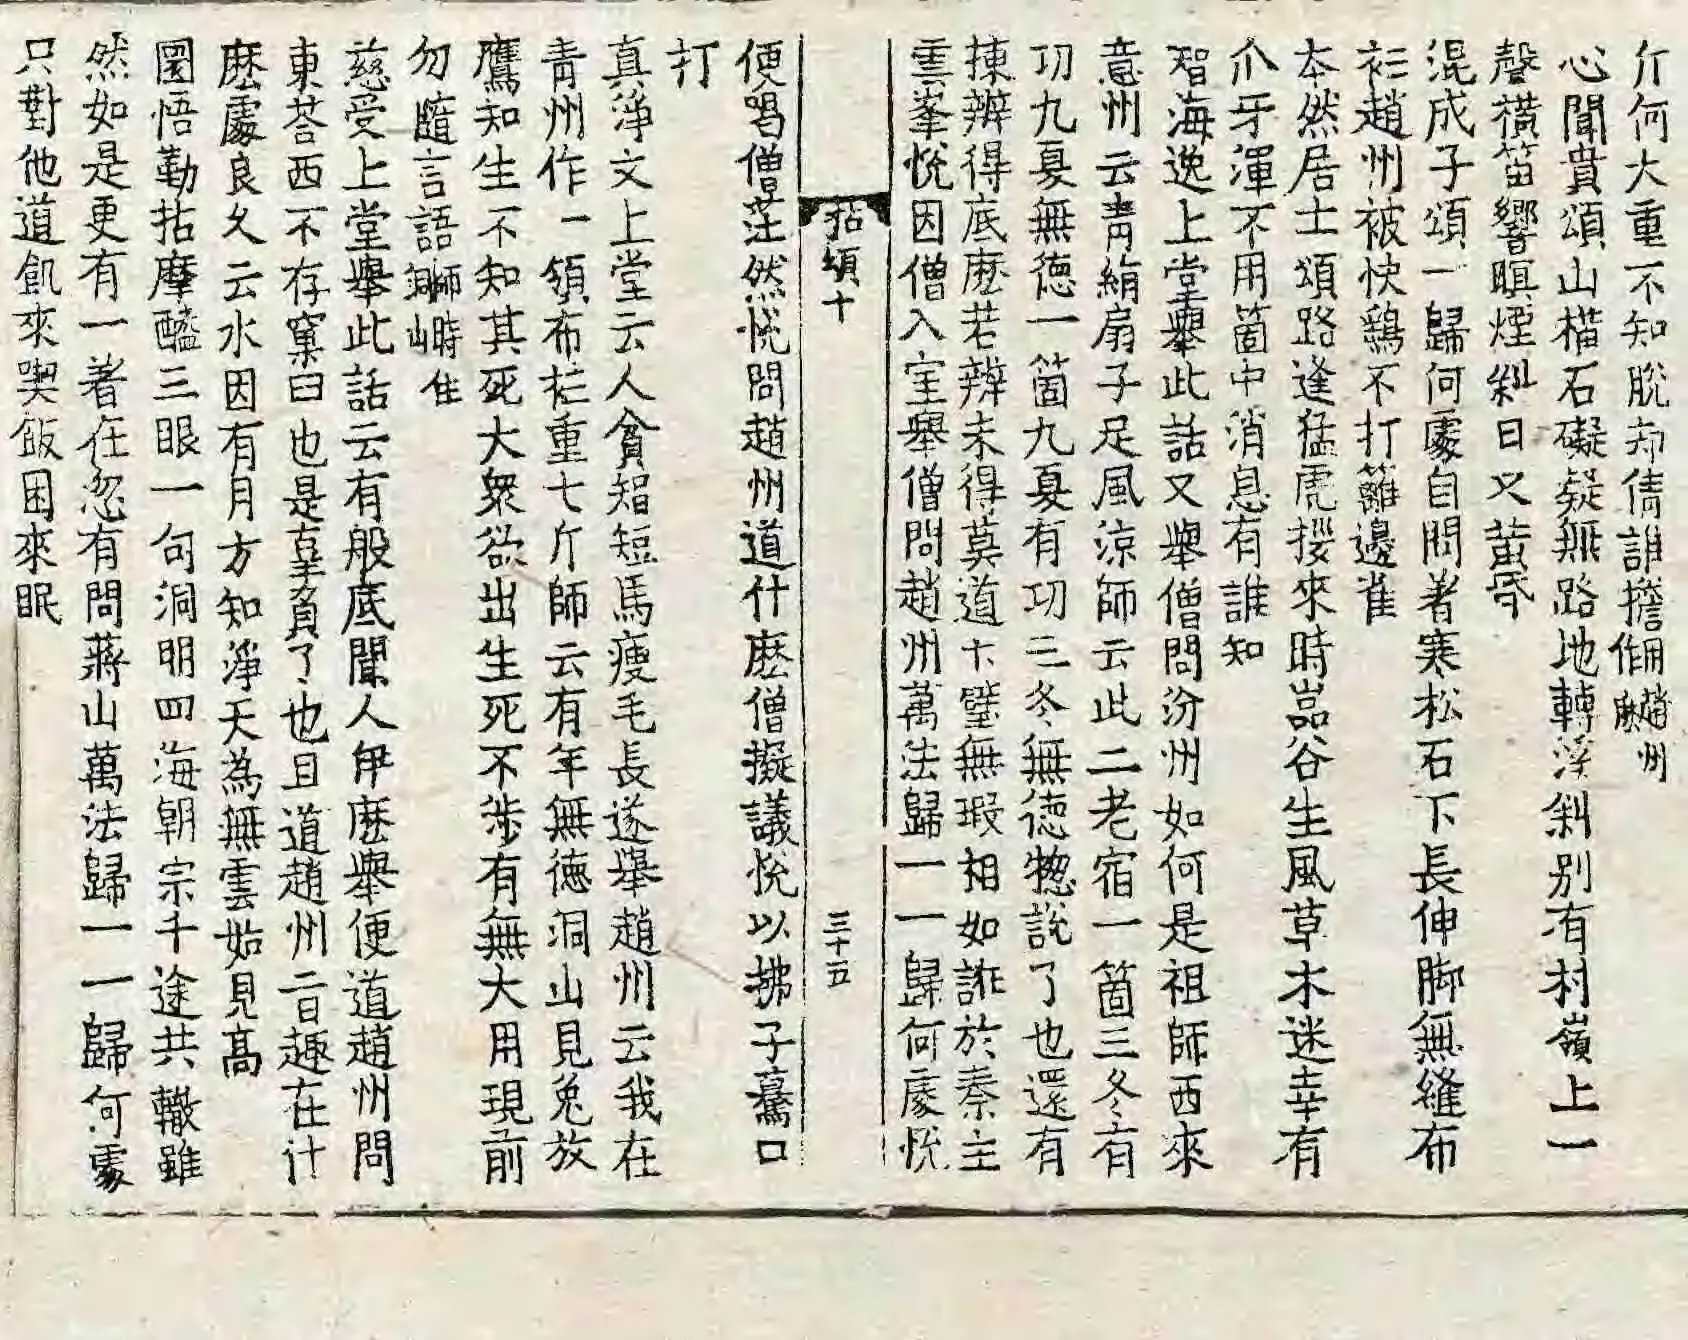 斤何大重不知脫却倩誰擔佣作趙州麻
心聞賁頌山橫石礙疑無路地轉溪斜別有村嶺上一
聲橫笛響暝煙斜日又黃昏
混成子頌一歸何處自問著寒松石下長伸脚無縫布
衫趙州被快鷂不打籬邊雀
本然居士頌路逢猛虎接來時嵓谷生風草木迷幸有
尒牙渾不用箇中消息有誰知
智海逸上堂舉此話又舉僧問汾州如何是祖師西來
意州云靑絹扇子足風涼師云此二老宿一箇三冬有
功九夏無德一箇九夏有功三冬無德惣說了也還有
揀辨得底麽若辨未得莫道卞璧無瑕相如誑於秦主
雲峯悅因僧入室舉僧問趙州萬法歸一一歸何處悅
拈頌十　三十五
便喝僧茫然悅問趙州道什麽僧擬議悅以拂子驀口
打
真淨文上堂云人貧智短馬瘦毛長遂舉趙州云我在
靑州作一領布衫重七斤師云有年無德洞山見兔放
鷹知生不知其死大衆欲出生死不涉有無大用現前
勿隨言語師時住洞山
慈受上堂舉此話云有般底聞人伊麽舉便道趙州問
東荅西不存窠臼也是辜負了也且道趙州意趣在什
麽處良久云水因有月方知淨天為無雲始見高
圜悟勤拈摩醯三眼一句洞明四海朝宗千途共轍雖
然如是更有一著在忽有問蔣山萬法歸一一歸何處
只對他道飢來喫飯困來眠